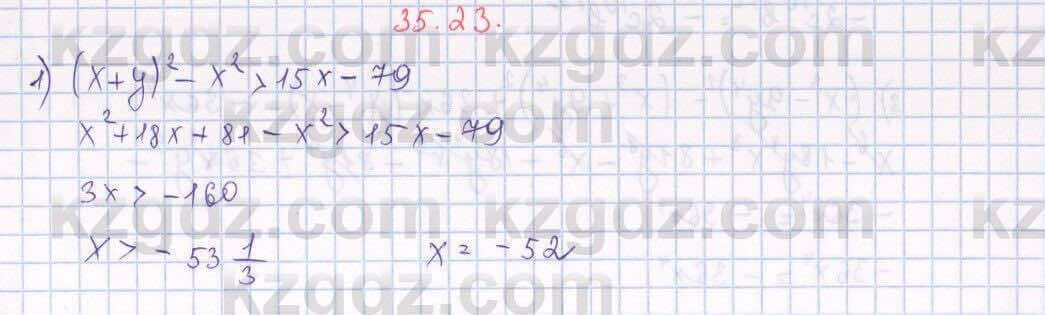 35.23.
kzgdz.com kzgdz.com kz
1) (x+y)² - x² > 15x - 79
x² + 18x + 81 - x² > 15x - 79
3x > -160
kzgdz.com kzgdz.com kz
x > - 53 1/3 x = - 52
kzgdz.com